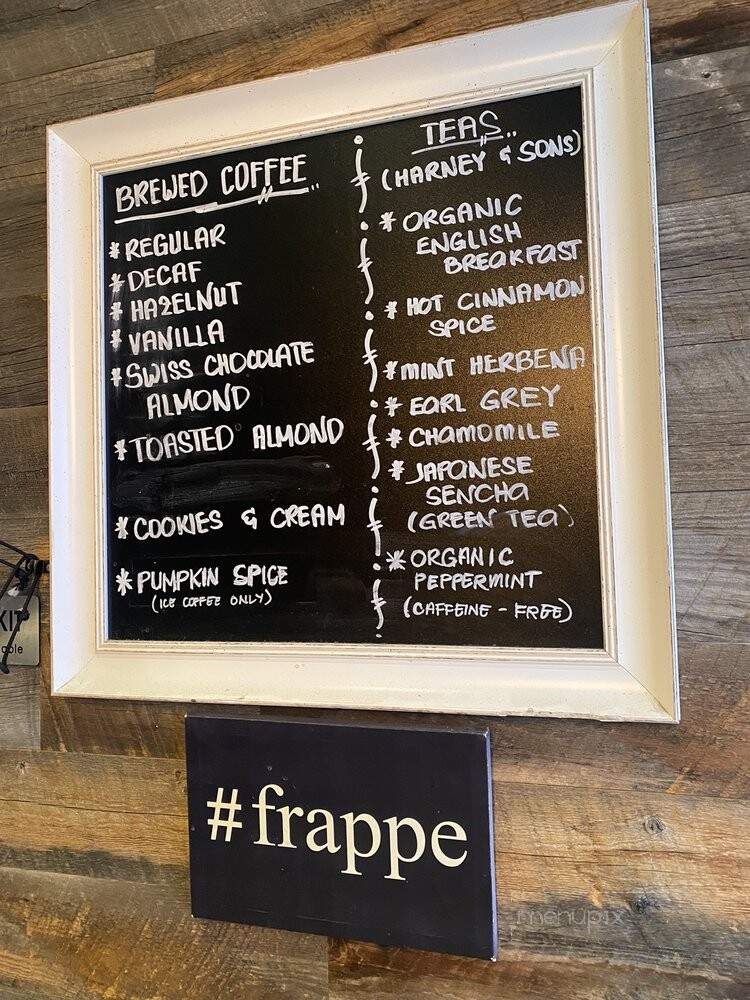 BREWED COFFEE
* REGULAR
* DECAF
* HAZELNUT
* VANILLA
* SWISS CHOCOLATE
ALMOND
* TOASTED ALMOND
* COOKIES & CREAM
* PUMPKIN SPICE
(ICE COFFEE ONLY)
TEAS..
(HARNEY & SONS)
* ORGANIC
ENGLISH
BREAKFAST
* HOT CINNAMON
SPICE
* MINT HERBENA
* EARL GREY
* CHAMOMILE
* JAPANESE
SENCHA
(GREEN TEA)
* ORGANIC
PEPPERMINT
(CAFFEINE - FREE)
#frappe
menupix